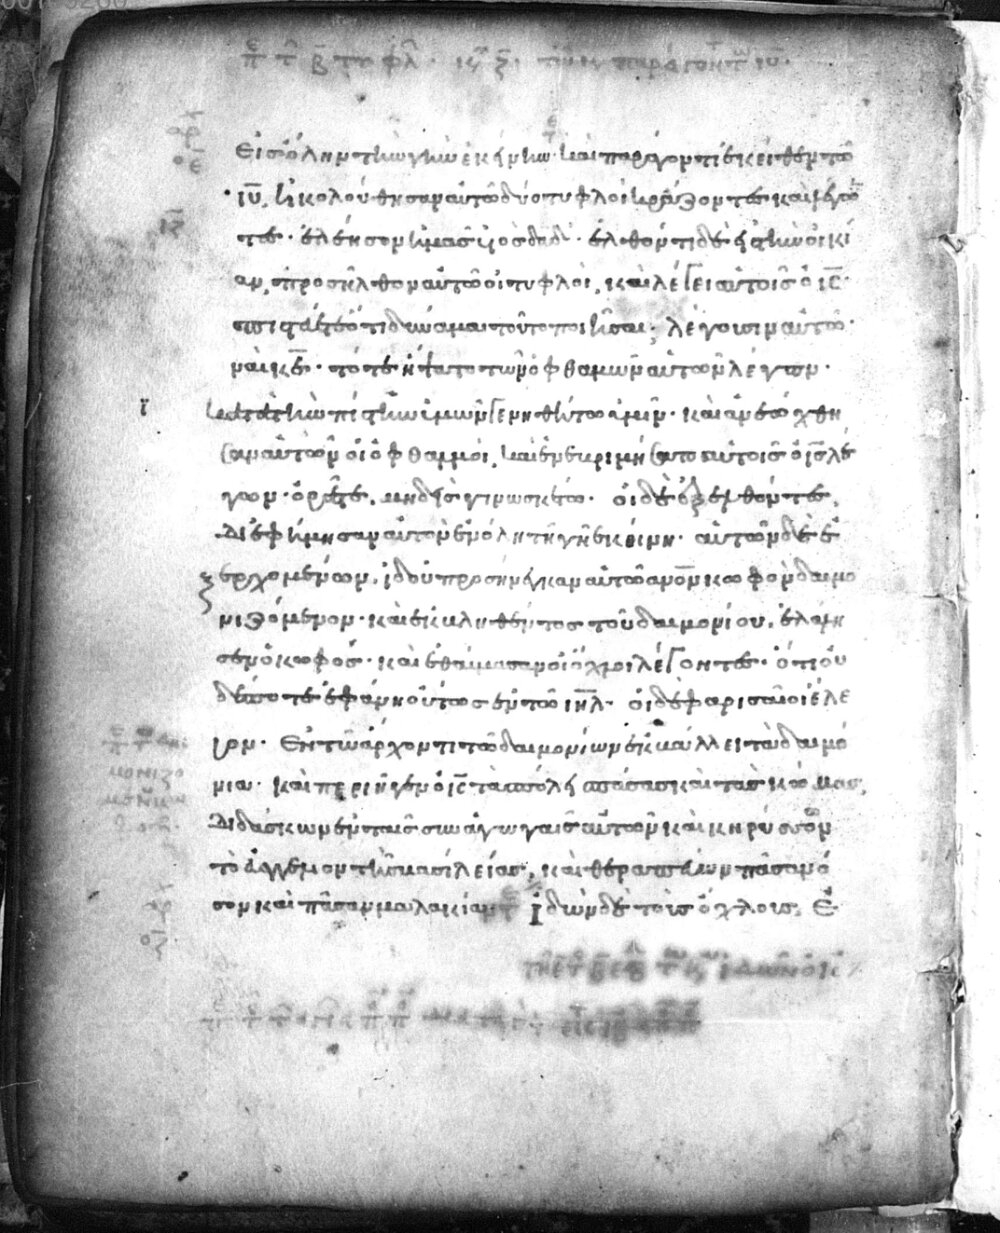 εἰς ὅλην τὴν γῆν ἐκείνην· καὶ παράγοντι ἐκεῖθεν τῶ
ιῦ, ἠκολούθησαν αὐτῶ δύο τυφλοὶ κράζοντες καὶ λέγον
τες· ἐλέησον ἡμᾶς υἱὸς δαδ· ἐλθόντι δὲ εἰς τὴν οἰκί
αν, προσῆλθον αὐτῶ οἱ τυφλοὶ, καὶ λέγει αὐτοῖς ὁ ις·
πιστεύετε ὅτι δύναμαι τοῦτο ποιῆσαι; λέγουσιν αὐτῶ·
ναὶ κε· τότε ἥψατο τῶν ὀφθαλμῶν αὐτῶν λέγων·
κατὰ τὴν πίστιν ὑμῶν γενηθήτω ὑμῖν· καὶ ἀνεώχθη
σαν αὐτῶν οἱ ὀφθαλμοὶ, καὶ ἐνεβριμήσατο αὐτοῖς ὁ ις λέ
γων· ὁρᾶτε, μηδεὶς γινωσκέτω· οἱ δὲ ἐξελθόντες,
διεφήμησαν αὐτὸν ἐν ὅλη τῆ γῆ ἐκείνη· αὐτῶν δὲ ἐ
ξερχομένων, ἰδοὺ προσήνεγκαν αὐτῶ ανον κωφὸν δαιμο
νιζόμενον· καὶ ἐκβληθέντος τοῦ δαιμονίου, ἐλάλη
σεν ὁ κωφός· καὶ ἐθαύμασαν οἱ ὄχλοι λέγοντες· ὅτι οὐ
δέποτε ἐφάνη οὕτως ἐν τῶ ιηλ· οἱ δὲ φαρισαῖοι ἔλε
γον· ἐν τῶ ἄρχοντι τῶν δαιμονίων ἐκβάλλει τὰ δαιμό
νια· καὶ περιῆγεν ὁ ις τὰς πόλεις πάσας καὶ τὰς κώμας,
διδάσκων ἐν ταῖς συναγωγαῖς αὐτῶν καὶ κηρύσσων
τὸ εὐαγγέλιον τῆς βασιλείας, καὶ θεραπεύων πᾶσαν νό
σον καὶ πᾶσαν μαλακίαν ἰδὼν δὲ τοὺς ὄχλους, ἐ